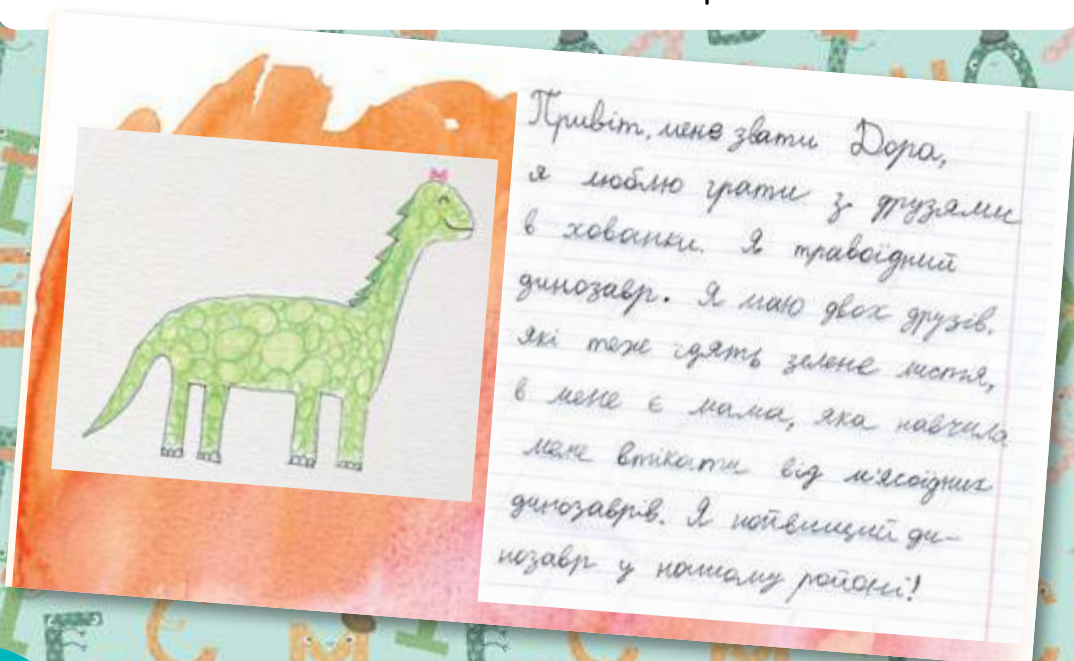 Привіт, мене звати Дора,
я люблю грати з друзями
в хованки. Я травоїдний
динозавр. Я маю двох друзів.
які теж їдять зелене листя,
в мене є мама, яка навчила
мене втікати від м'ясоїдних
динозаврів. Я найвищий ди-
нозавр у нашому районі!